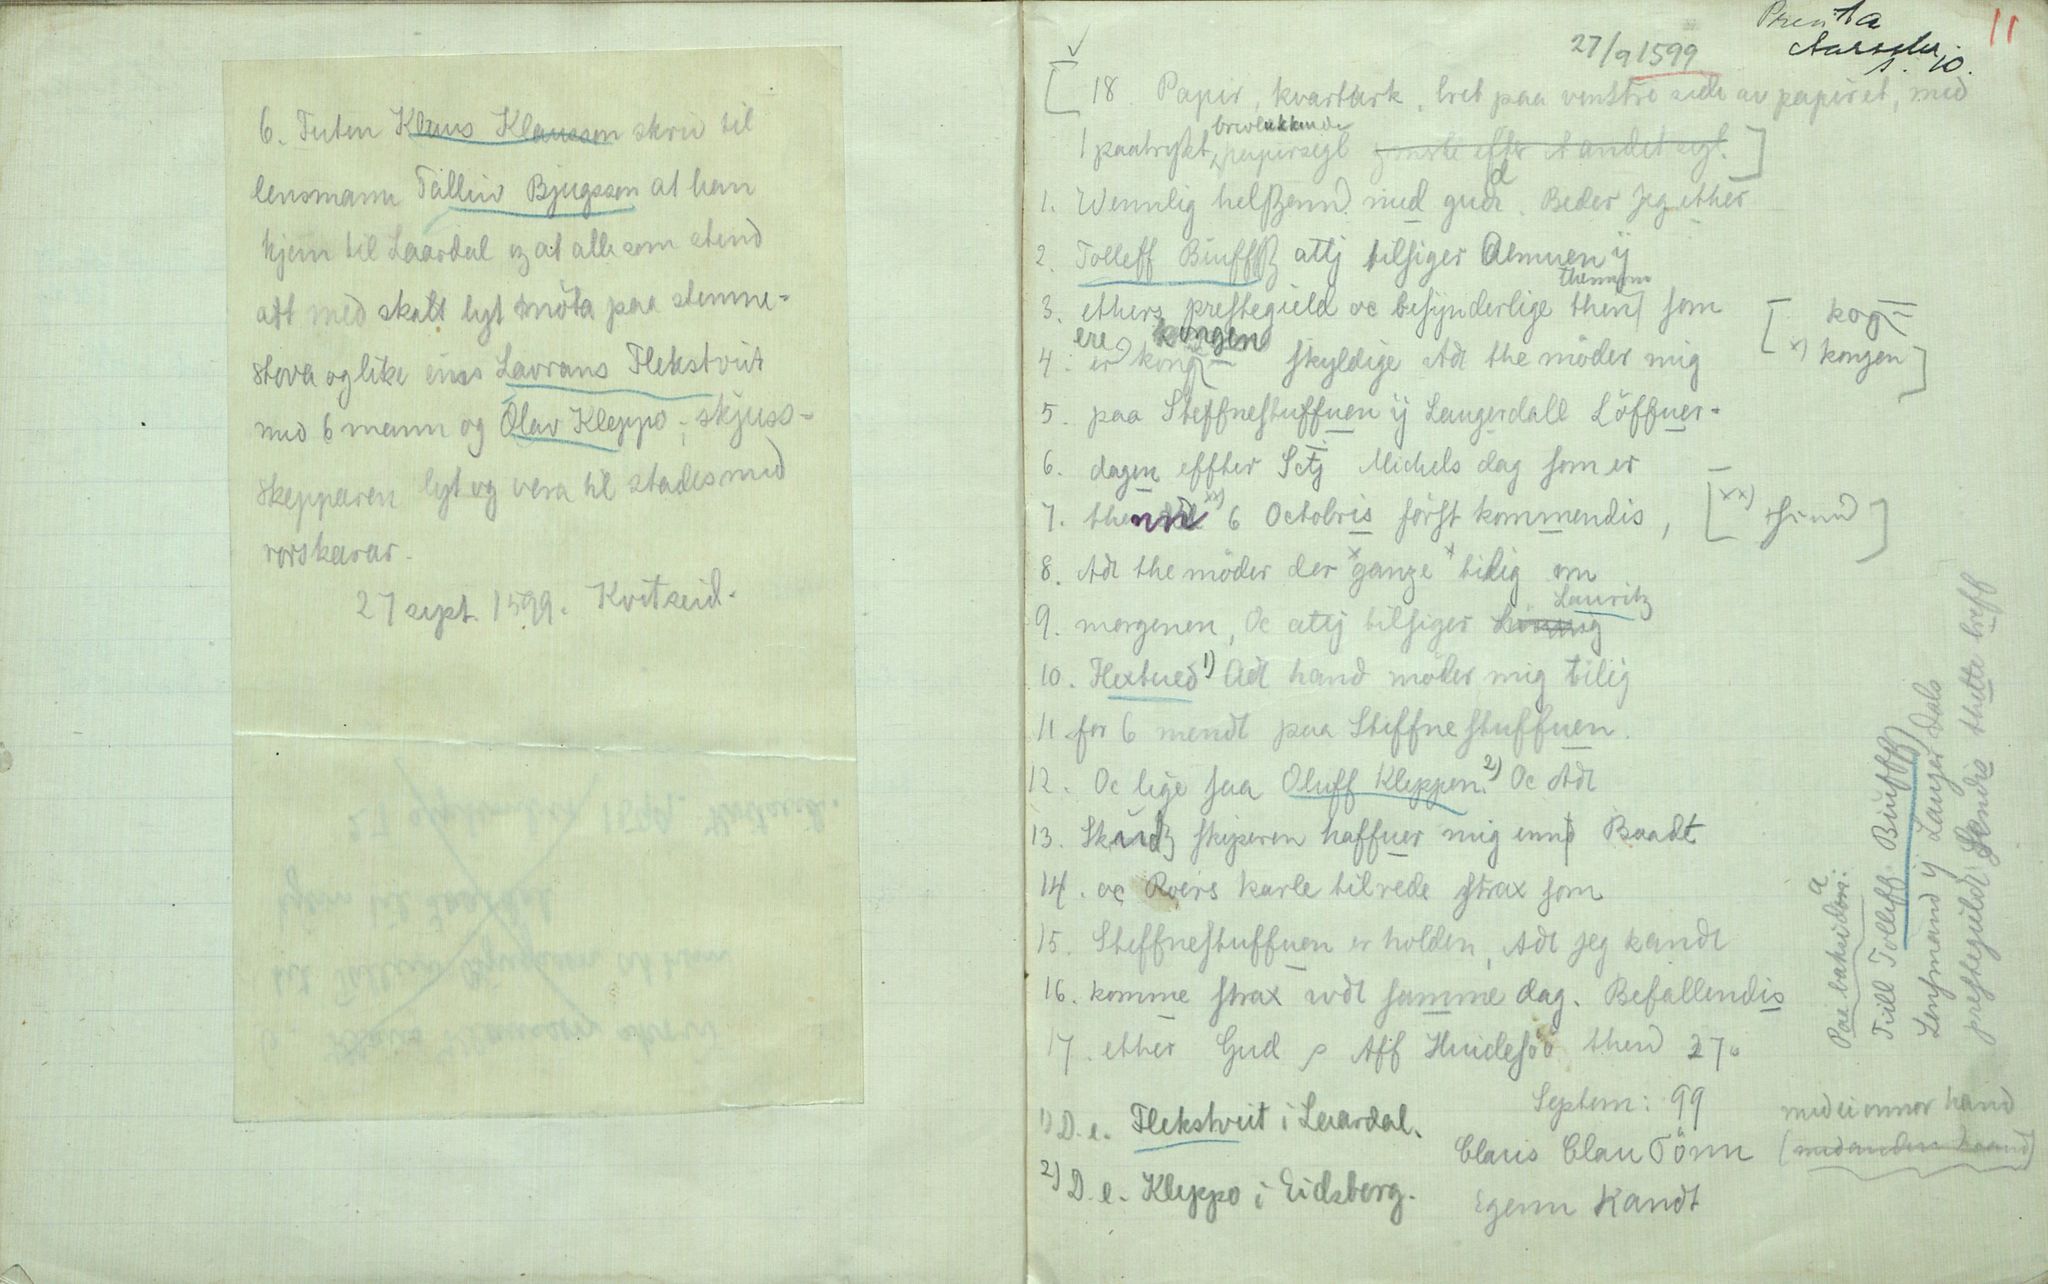 6. Futen Klaus Klausson skreiv til
lensmann Talleiv Bjugsson at han
kjem til Laardal og at alle som stend
att med skatt lyt møta paa stemne-
stova og like eins Lavrans Flekstveit
med 6 mann og Olav Kleppo; skjuss-
skepparen lyt og vera til stades med
rorskarar.
27 sept. 1599. Kvitseid.
Prenta
Aarsskr.
s. 10.
11
27/9 1599
[ 18. Papir, kvartark, bret paa venstre side av papiret, med
brevlukkende
1 paatrykt papirsegl gjenste efter et andet segl. ]
1. Wennlig helßenn med gudt. Beder Jeg ether
2. Tolleff Biuffß attj tilsiger Almuen ij
themom
3. ethers prestegield oc besÿnderlige then som
ere kongen
4. er kong skyldige Adt the möder mig
[ kog
x) kongen ]
5. paa Steffnestuffuen ij Laugerdall Löffuer-
6. dagen effter Sctj Michels dag som er
7. thenn xx) 6 Octobris först kommendis,
[ xx)
8. Adt the möder der x gange x tidig om
Lauritz
9. morgenen, Oc attj tilsiger
10. Flextued 1) Adt hand möder mig tilig
11. for 6 mendt paa Steffnestuffuen.
12. Oc lige saa Oluff Kleppen. 2) Oc Adt
13. Skudz skiperen haffuer mig enn Baadt
14. oc Roers karle tilrede strax som
15. Steffnestuffuen er holden, Adt jeg kandt
16. komme strax wdt samme dag. Befallendis
17. ether Gud Aff Huidesöö then 27.
Septem: 99
Claus Clau Tönn
Egenn Handt
1) D. e. Flekstveit i Laardal.
2) D. e. Kleppo i Eidsborg.
Paa baksidom:
Till Tolleff Biuffß
Lensmand ij Laugerdals
prestegieldt Sendis thette breff
med ei onnor hand
(med anden haand)